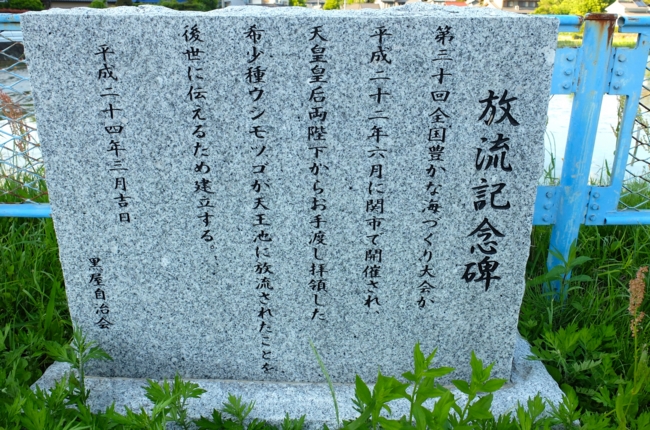 放流記念碑
第三十回全国豊かな海づくり大会が
平成二十二年六月に関市で開催され、
天皇皇后両陛下からお手渡し拝領した
希少種ウシモツゴが天王池に放流されたことを
後世に伝えるため建立する。
平成二十四年三月吉日
黒屋自治会